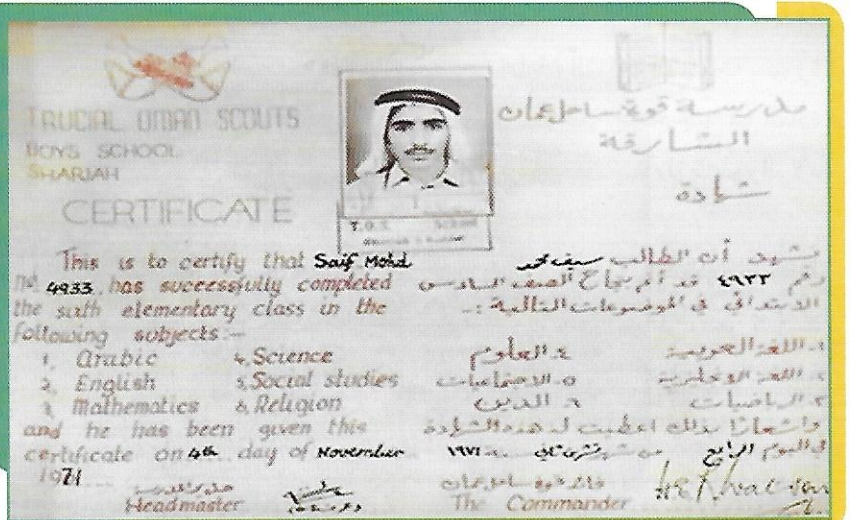 TRUCIAL OMAN SCOUTS
BOYS SCHOOL
SHARJAH
CERTIFICATE
مدرسة قوة ساحل عمان
الشارقة
شهادة
T.O.S.
This is to certify that Saif Mohd
No. 4933 has successfully completed
the sixth elementary class in the
following subjects:-
1. Arabic 4. Science
2. English 5. Social studies
3. Mathematics 6. Religion
and he has been given this
certificate on 4th day of November
1971
نشهد أن الطالب سيف محمد
رقم ٤٩٣٣ قد أتم بنجاح الصف السادس
الابتدائي في الموضوعات التالية :-
١. اللغة العربية ٤. العلوم
٢. اللغة الانجليزية ٥. الاجتماعيات
٣. الرياضيات ٦. الدين
واشعارا بذلك اعطيت له هذه الشهادة
في اليوم الرابع من شهر تشرين ثاني سنة ١٩٧١
مدير المدرسة
Headmaster
قائد قوة ساحل عمان
The Commander